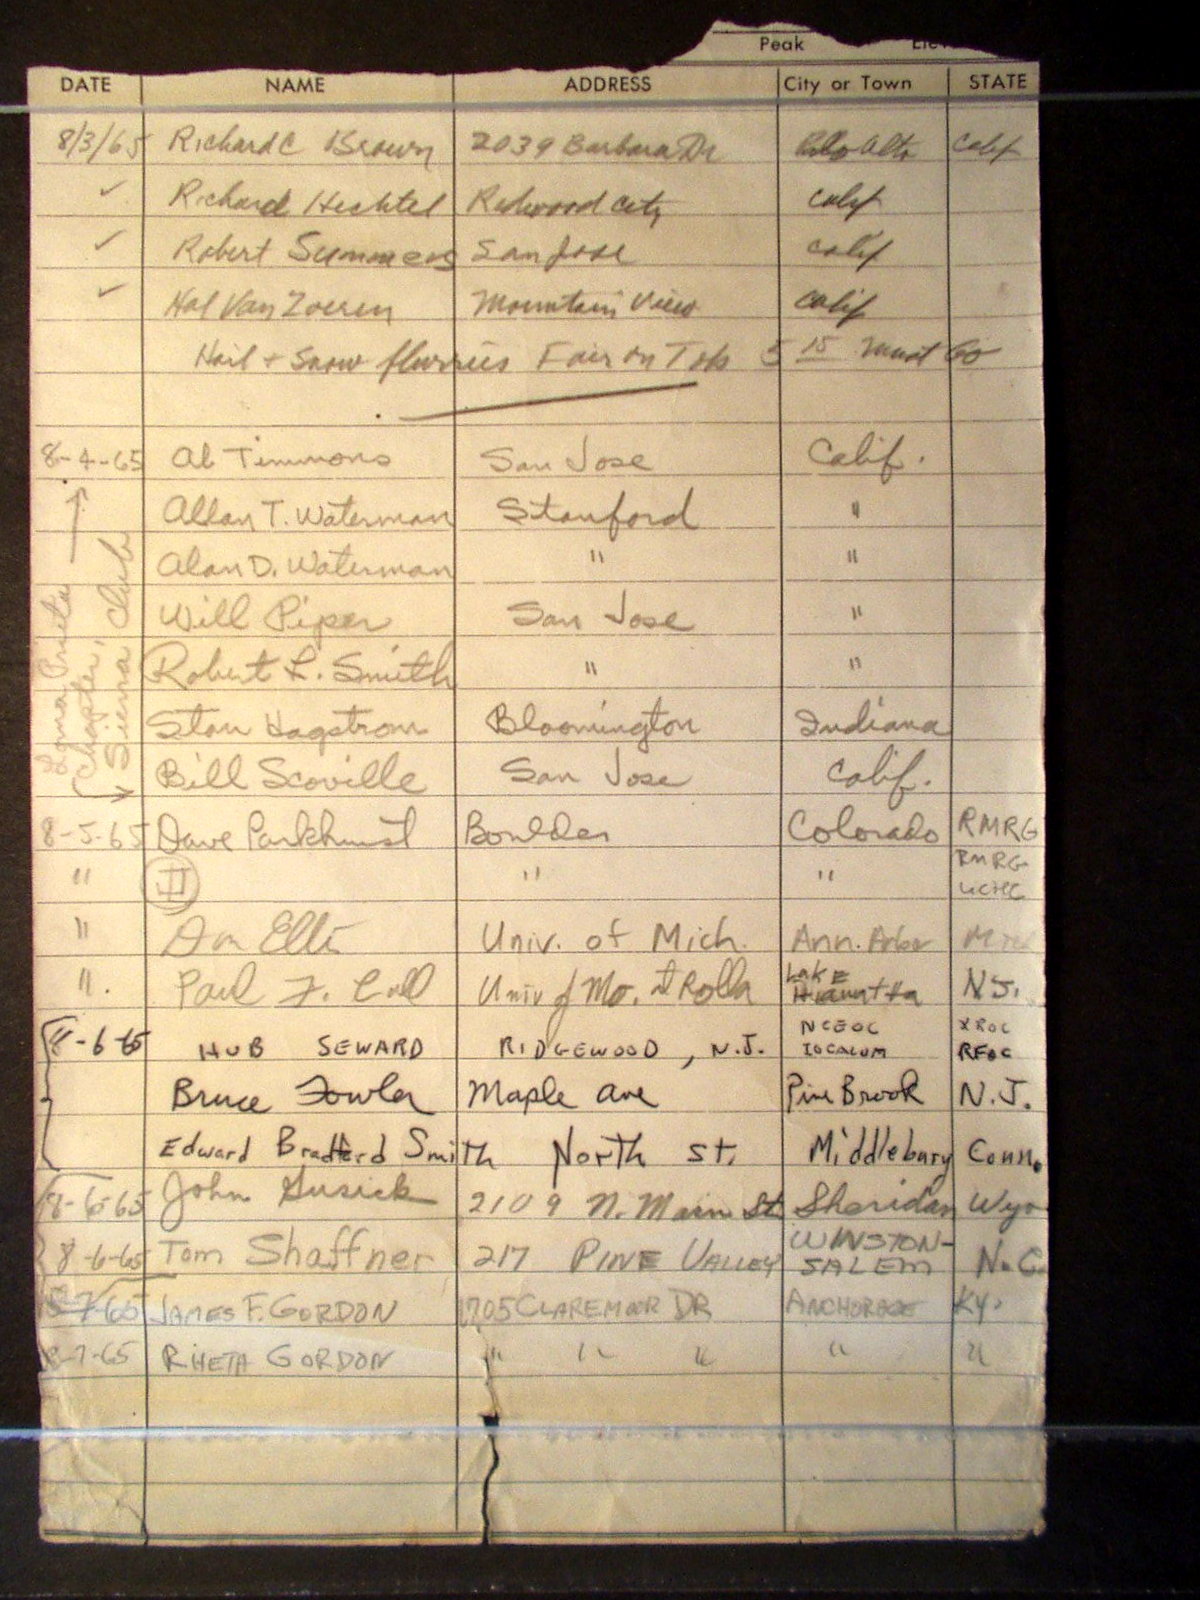 Peak
DATE NAME ADDRESS City or Town STATE
8/3/65 Richard C Brown 2039 Barbara Dr Palo Alto Calif
✓ Richard Hechtel Redwood City Calif
✓ Robert Summers San Jose Calif
✓ Hal Van Zoeren Mountain View Calif
Hail + Snow flurries Fair on Top 5 15 Must Go
8-4-65 Al Timmons San Jose Calif.
Allan T. Waterman Stanford "
Alan D. Waterman " "
Will Piper San Jose "
Robert L. Smith " "
Stan Hagstrom Bloomington Indiana
Bill Scoville San Jose Calif.
Loma Prieta
Chapter,
Sierra Club
8-5-65 Dave Parkhurst Boulder Colorado RMRG
" II " " RMRG
" Univ. of Mich. Ann. Arbor Mich
". Paul F. Univ of Mo. at Rolla Lake Hiawatha NJ.
8-6-65 HUB SEWARD RIDGEWOOD, N.J. NCEOC
Bruce Fowler Maple Ave Pine Brook N.J.
Edward Bradford Smith North St. Middlebury Conn.
8-6-65 John Gusick 2109 N. Main St Sheridan Wyo
8-6-65 Tom Shaffner 217 PINE VALLEY WINSTON-SALEM N.C.
8-7-65 JAMES F. GORDON 1705 CLAREMOOR DR ANCHORAGE KY.
8-7-65 RHETA GORDON " " " " "